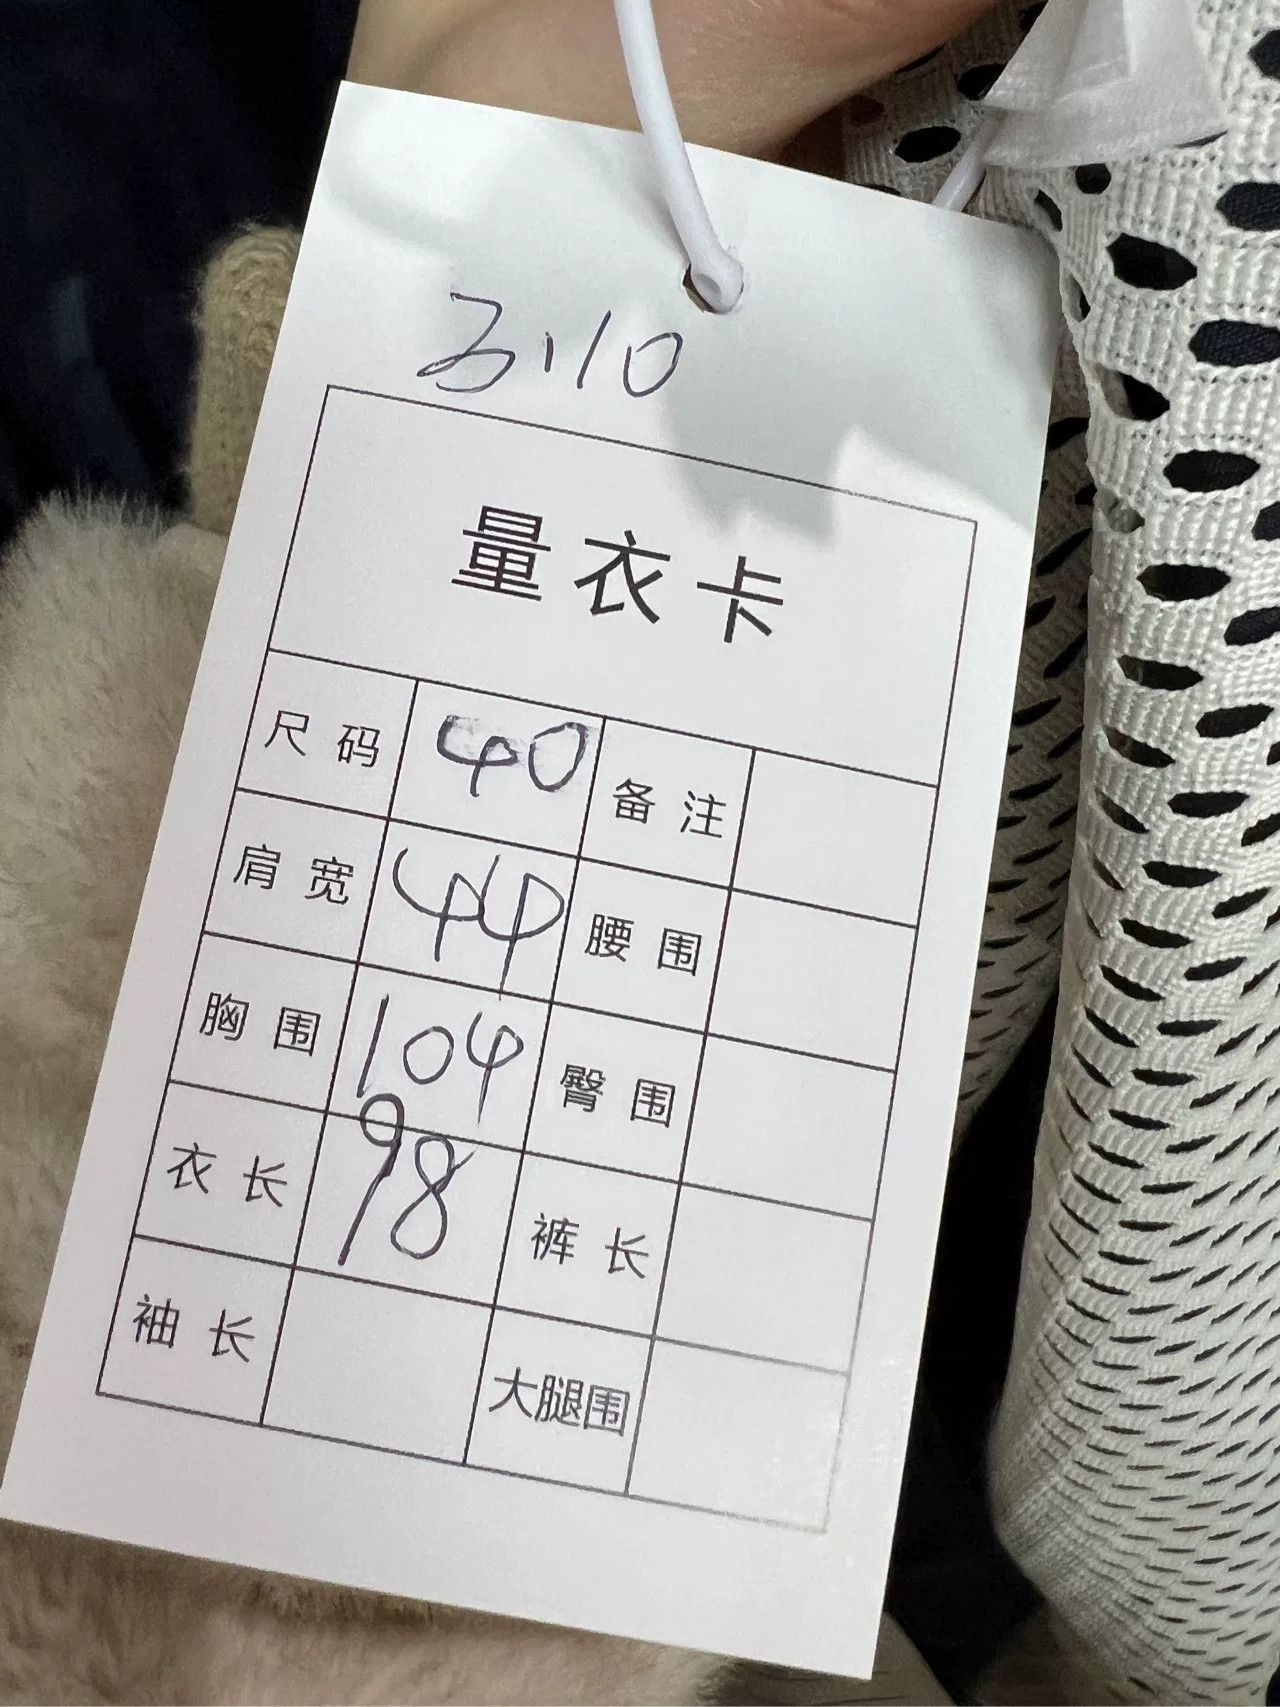 3.10
量衣卡
尺码 40 备注
肩宽 44 腰围
胸围 104 臀围
衣长 98 裤长
袖长 大腿围